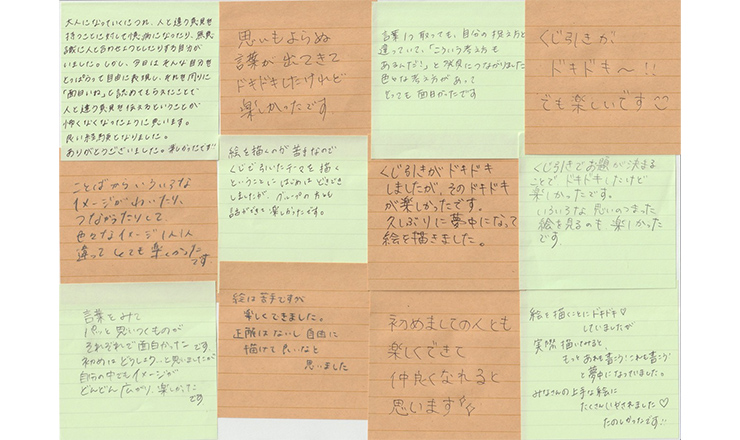 大人になっていくにつれ、人と違う意見を
持つことに対して臆病になったり、無意
識に人と合わせようとしたりする自分が
いました。しかし、今日はそんな自分を
とっぱらって自由に表現し、それを周りに
「面白いね」と認めてもらえたことで
人と違う意見を伝えるということが
怖くなくなったように思います。
良い経験となりました。
ありがとうございました。楽しかったです
思いもよらぬ
言葉が出てきて
ドキドキしたけれど
楽しかったです
言葉1つ取っても、自分の捉え方と
違っていて、「こういう考え方も
あるんだ!」と発見につながりました
色々な考え方があって
とっても面白かったです
くじ引きが
ドキドキ〜!!
でも楽しいです
ことばからいろいろな
イメージがわいたり、
つながったりして
色々なイメージ1人1人
違ってとても楽しかった
です
絵を描くのが苦手なので
くじで引いたテーマを描く
ということにはじめはどきどき
しましたが、グループの方とも
話ができて楽しかったです。
くじ引きがドキドキ
しましたが、そのドキドキ
が楽しかったです。
久しぶりに夢中になって
絵を描きました。
くじ引きでお題が決まる
ことでドキドキしたけど
楽しかったです。
いろいろな思いのつまった
絵を見るのも楽しかった
です
言葉をみて
パッと思いつくものが
それぞれで面白かったです
初めはどうしよう…と思いましたが
自分の中でもイメージが
どんどん広がり、楽しかった
です
絵は苦手ですが
楽しくできました。
正解はないし自由に
描けて良いなと
思いました
初めましての人とも
楽しくできて
仲良くなれると
思います
絵を描くことにドキドキ♡
していましたが
実際描いてみると、
もっとあれも書こう!これも書こう!
と夢中になっていました。
みなさんの上手な絵に
たくさんいやされました♡
たのしかったです!!